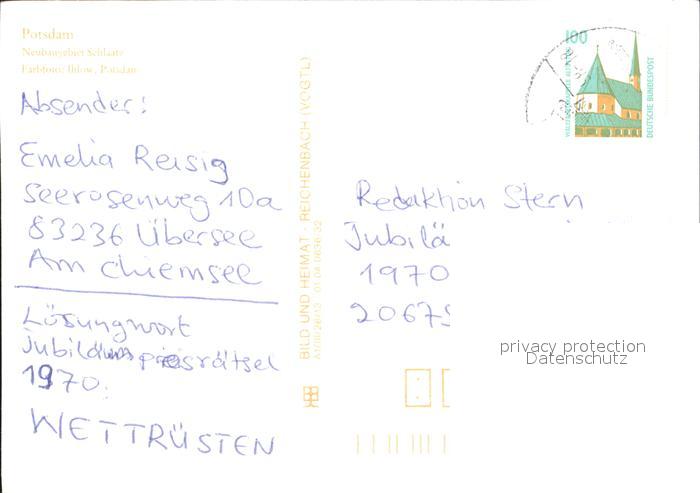 Potsdam
Neubaugebiet Schlaatz
Farbfoto: Ihlow, Potsdam
Absender:
Emelia Reisig
Seerosenweg 10a
83236 Übersee
Am Chiemsee
Lösungwort
Jubiläumspreisrätsel
1970:
WETTRÜSTEN
BILD UND HEIMAT · REICHENBACH (VOGTL)
100
DEUTSCHE BUNDESPOST
Redaktion Stern
Jubilä
1970
20679
privacy protection
Datenschutz